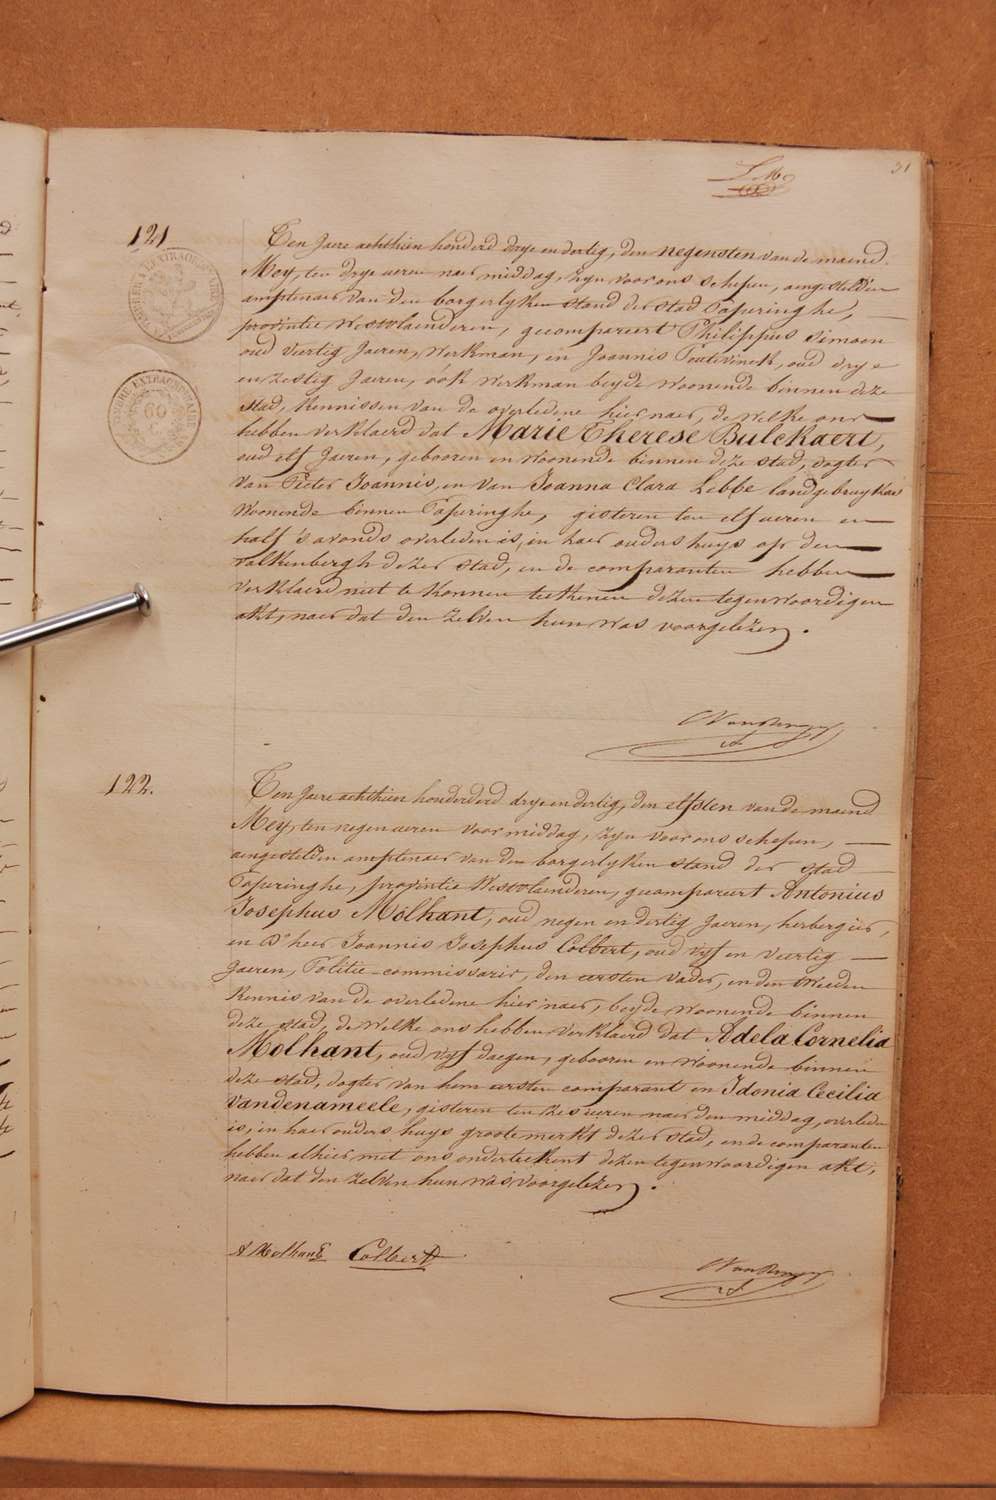 31
121
Ten Jaere achthien honderd drye en dertig, den negensten van de maend
Mey, ten drye ueren naer middag, zyn voor ons schepen, aengestelden
amptenaer van den borgerlyken stand der stad Poperinghe,
provintie Westvlaenderen, gecompareert Philippus Simoen
oud veertig Jaeren, werkman, en Joannis Toutevinck, oud drye
en zestig Jaeren, óók werkman beyde woonende binnen deze
stad, kennissen van de overledene hier naer, de welke ons
hebben verklaerd dat Marie Therese Bulckaert,
oud elf Jaeren, gebooren en woonende binnen deze stad, dogter
van Pieter Joannis, en van Joanna Clara Lebbe landgebruykers
woonende binnen Poperinghe, gisteren ten elf ueren en
half s'avonds overleden is, in haer ouders huys op den
valkenbergh dezer stad, en de comparanten hebben
verklaerd niet te konnen teekenen dezen tegenwoordigen
akt, naer dat den zelven hun was voorgelezen.
122.
Ten Jaere achthien honderderd drye en dertig, den elfsten van de maend
Mey, ten negen ueren voor middag, zyn voor ons schepen,
aengestelden amptenaer van den borgerlyken stand der stad
Poperinghe, provintie Westvlaenderen, gecompareert Antonius
Josephus Molhant, oud negen en dertig Jaeren, herbergier,
en d'heer Joannis Josephus Colbert, oud vyf en veertig
Jaeren, Politie-commissaris, den eersten vader, en den tweeden
kennis van de overledene hier naer, beyde woonende binnen
deze stad, de welke ons hebben verklaerd dat Adela Cornelia
Molhant, oud vyf daegen, gebooren en woonende binnen
deze stad, dogter van hem eersten comparant en Idonia Cecilia
Vandenameele, gisteren ten zes ueren naer den middag, overleden
is, in haer ouders huys groote merkt dezer stad, en de comparanten
hebben alhier met ons onderteekent dezen tegenwoordigen akt,
naer dat den zelven hun was voorgelezen.
A Molhant Colbert